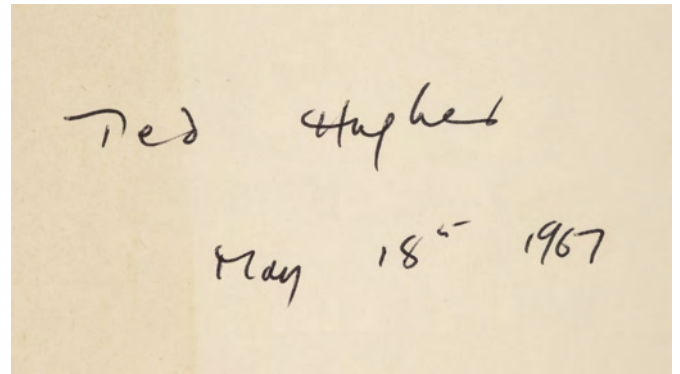 Ted Hughes
May 18th 1967